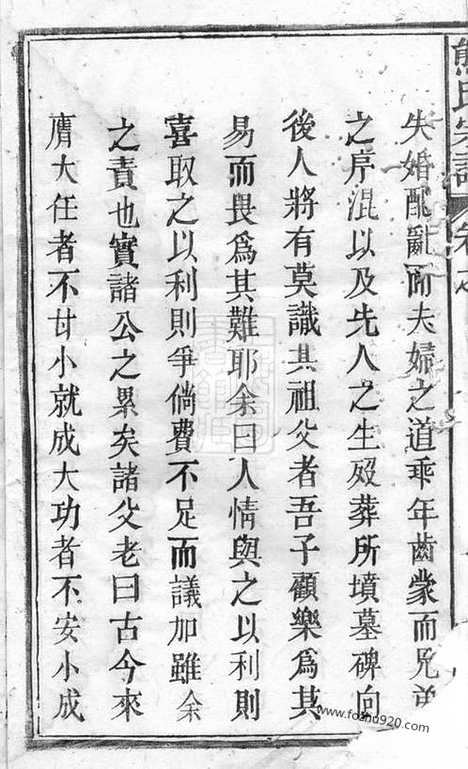 熊氏宗譜
失婚配亂而夫婦之道乖年齒蒙而兄弟
之序混以及先人之生殁葬所墳墓碑向
後人將有莫識其祖父者吾子顧樂為其
易而畏為其難耶余曰人情與之以利則
喜取之以利則爭倘費不足而議加雖余
之責也實諸公之累矣諸父老曰古今來
膺大任者不甘小就成大功者不安小成
www.foshu920.com